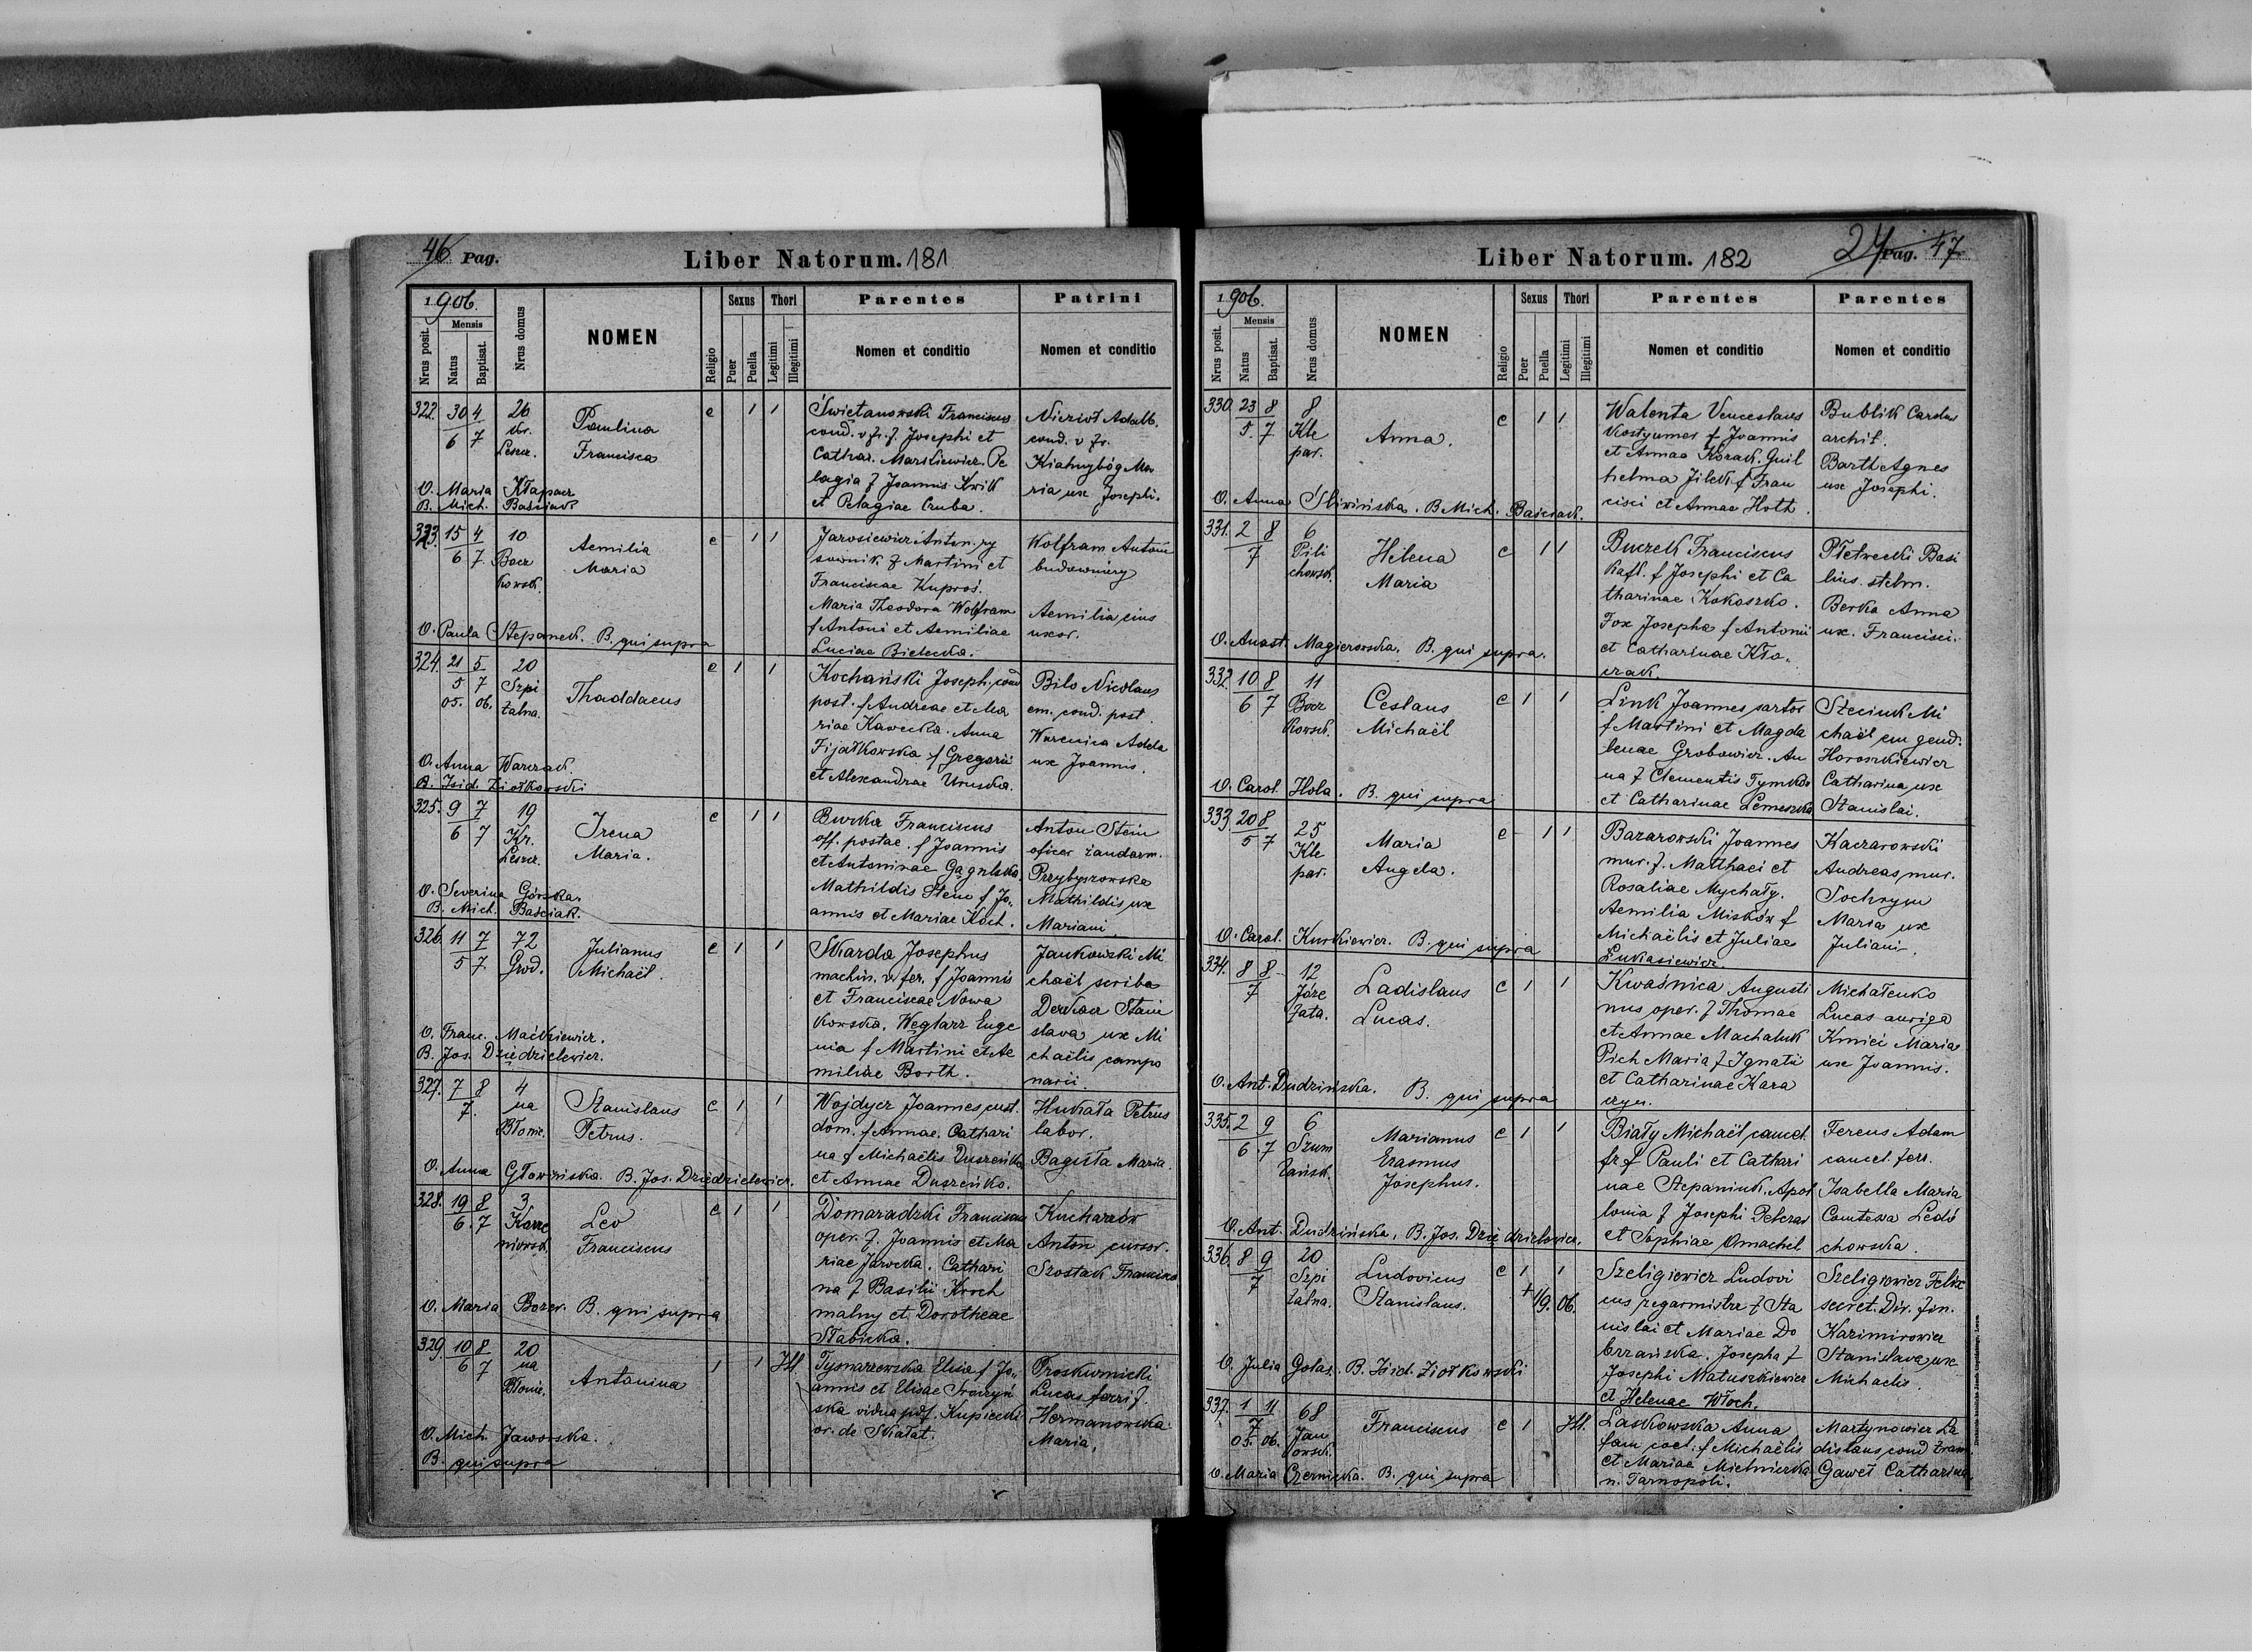 46 Pag.
Liber Natorum. 181
1906.
Nrus posit.
Mensis
Natus
Baptisat.
Nrus domus
NOMEN
Religio
Sexus
Puer
Puella
Thori
Legitimi
Illegitimi
Parentes
Nomen et conditio
Patrini
Nomen et conditio
322. 30/6 4/7
26
Kr.
Leszcz.
Paulina
Francisca
c 1 1
Świetanowski Franciscus
cond. v fr. f Josephi et
Cathar. Marskiewicz. Pe
lagia f Joannis Kwik
et Pelagiae Cruba.
Adalb.
cond. v fr.
Ma
ria ux Josephi.
O. Maria Kłapacz
B. Mich. Baściak
323. 15/6 4/7
10
Bocz
kowsk.
Aemilia
Maria
c 1 1
Jarosiewicz Anton. ry
sownik f Martini et
Franciscae Kuproś.
Maria Theodora Wolfram
f Antoni et Aemiliae
Luciae Bielecka.
Wolfram Antoni
budowniczy
Aemilia eius
uxor.
O. Paula Stepanek. B. qui supra
324. 21/5 05. 5/7 06.
20
Szpi
talna.
Thaddaeus
c 1 1
Kochański Joseph. cond
post. f Andreae et Ma
riae Kawecka. Anna
Fijałkowska f Gregorii
et Alexandrae Uruska.
Bilo Nicolaus
em. cond. post.
Warenica Adela
ux Joannis.
O. Anna Warzack.
B. Isid. Ziołkowski
325. 9/6 7/7
19
Kr.
Leszcz.
Irena
Maria.
c 1 1
Burka Franciscus
off. postae. f Joannis
et Antoninae
Mathildis Stein f Jo„
annis et Mariae Koch.
Anton Stein
oficer żandarm.
Przybyszowska
Mathildis ux
Mariani.
O. Severina Górska.
B. Mich. Baściak.
326. 11/5 7/7
72
Grod.
Julianus
Michaël.
c 1 1
Skarda Josephus
machin. v. fer. f Joannis
et Franciscae Nowa
kowska. Węglarz Euge
nia f Martini et Ae
miliae Borth.
Jankowski Mi
chaël scriba
Derkacz Stani
slava ux Mi
chaëlis campa
narii.
O. Franc. Maćkiewicz.
B. Jos. Dziędzielewicz.
327. 7/7. 8
4
na
Błonie.
Stanislaus
Petrus.
c 1 1
Wojdycz Joannes cust.
dom. f Annae. Cathari
na f Michaëlis Duszeńko
et Annae Duszeńko.
Hukała Petrus
labor.
Baguta Maria.
O. Anna Głowińska. B. Jos. Dziędzielewicz.
328. 19/6 8/7
3
Kazi
mirowsk.
Leo
Franciscus
c 1 1
Domaradzki Franciscus
oper. f. Joannis et Ma
riae Jawecka. Cathari
na f Basilii Kroch
malny et Dorotheae
Słabicka.
Kucharzów
Anton cursor.
Szostak Francisca
O. Maria Borer. B. qui supra
329. 10/6 8/7
20
na
Błonie.
Antonina
1 1 Ill.
Tysmarzewska Elisa f Jo„
annis et Elisae
ska vidua pdf. Kupiecki
or. de Skałat.
Proskurnicki
Lucas ferrif.
Hermanowska
Maria.
O. Mich. Jaworska.
B. qui supra
Liber Natorum. 182
24 Pag. 47
1906.
Nrus posit.
Mensis
Natus
Baptisat.
Nrus domus
NOMEN
Religio
Sexus
Puer
Puella
Thori
Legitimi
Illegitimi
Parentes
Nomen et conditio
Parentes
Nomen et conditio
330. 23/5. 8/7
8
Kle
par.
Anna.
c 1 1
Walenta Venceslaus
Kostyumer f Joannis
et Annae Korack. Guil
helma Jilek f Fran
cisci et Annae Hoth.
Bublik Carolus
archit.
Barth Agnes
ux Josephi.
O. Anna Śliwińska. B Mich. Baściack.
331. 2/7 8
6
Pili
chowsk.
Helena
Maria
c 1 1
Buczek Franciscus
kafl. f Josephi et Ca
tharinae Kokoszko.
Fox Josepha f Antonii
et Catharinae Kło„
czak.
Pletwecki Basi
lius. stelm.
Berko Anna
ux. Francisci.
O. Anast. Magierowska. B. qui supra.
332. 10/6 8/7
11
Bocz
kowsk.
Ceslaus
Michaël
c 1 1
Link Joannes sartor
f Martini et Magda
lenae Grobowicz. An
na f Clementis Tymków
et Catharinae Lemeszka
Steciuk Mi
chaël em gend.
Horoszkiewicz
Catharina ux
Stanislai.
O. Carol. Hola. B. qui supra
333. 20/5 8/7
25
Kle
par.
Maria
Angela.
c 1 1
Bazarowski Joannes
mur. f. Matthaei et
Rosaliae Mychały.
Aemilia Misków f
Michaëlis et Juliae
Łukasiewicz.
Kaczarowski
Andreas mur.
Sochrym
Maria ux
Juliani.
O. Carol. Kurkiewicz. B. qui supra
334. 8/7 8
12
Józe
fata.
Ladislaus
Lucas.
c 1 1
Kwaśnica Augusti
nus oper. f Thomae
et Annae Machaluk
Pich Maria f Ignatii
et Catharinae Kara
czyn.
Michałenko
Lucas auriga
Kmieć Maria
ux Joannis.
O. Ant. Dudzińska. B. qui supra
335. 2/6. 9/7
6
Szum
lańsk.
Marianus
Erasmus
Josephus.
c 1 1
Biały Michaël cancel.
fr f Pauli et Cathari
nae Stepaniuk. Apol
lonia f Josephi Pelczar
et Sophiae Omachel
Ferens Adam
cancel. ferr.
Isabella Maria
Comtessa Ledó
chowska.
O. Ant. Dudzińska. B. Jos. Dziędzielewicz.
336. 8/7 9
20
Szpi
talna.
Ludovicus
Stanislaus.
c 1 1
† 1/9. 06.
Szeligiewicz Ludovi
cus zegarmistrz f Sta
nislai et Mariae Do
brzańska. Josepha f
Josephi Matuszkiewicz
et Helenae Włoch.
Szeligiewicz Felix
secret. Dir. fin.
Kazimirowicz
Stanislava ux
Michaelis.
O. Julia Golas. B. Isid. Ziołkowski
337. 1/7 05. 11 06.
68
Jan
owsk.
Franciscus
c 1 Ill.
Laskowska Anna
fam coel. f Michaëlis
et Mariae
n. Tarnopoli.
Martynowicz La
dislaus cond tram.
Gaweł Catharina.
O. Maria Czernicka. B. qui supra